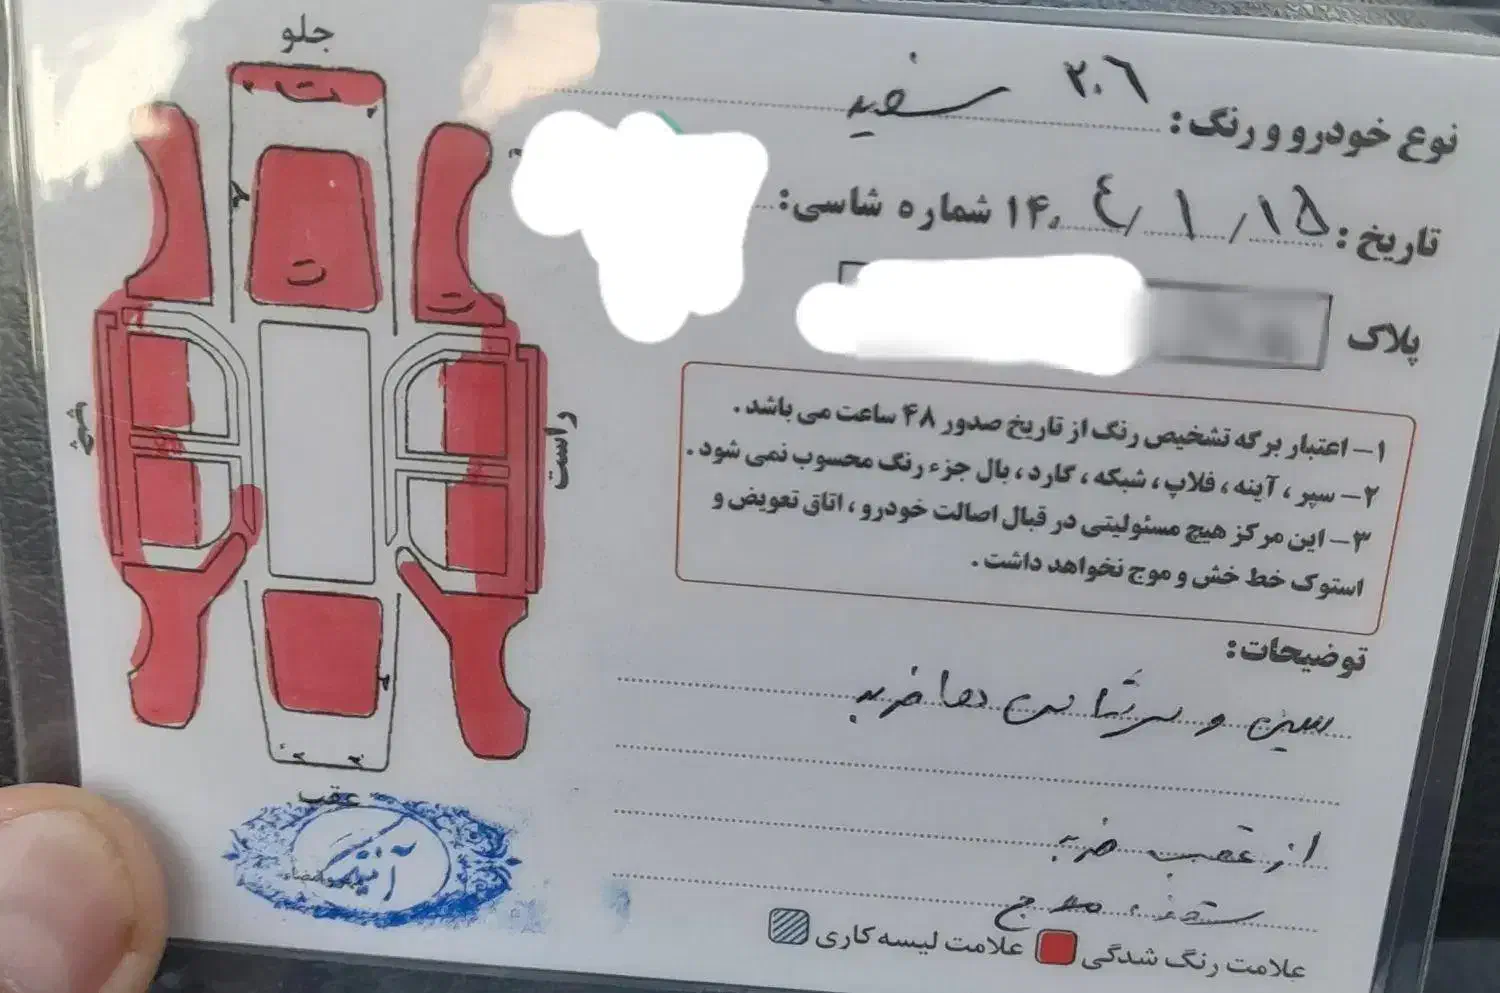 جلو
نوع خودرو و رنگ: ۲۰۶ سفید
تاریخ: ۱۵ / ۱ / ۱۴۰۴ شماره شاسی:
پلاک
۱- اعتبار برگه تشخیص رنگ از تاریخ صدور ۴۸ ساعت می باشد.
۲- سپر، آینه، فلاپ، شبکه، گارد، بال جزء رنگ محسوب نمی شود.
۳- این مرکز هیچ مسئولیتی در قبال اصالت خودرو، اتاق تعویض و
استوک خط خش و موج نخواهد داشت.
توضیحات:
سینی و سرشاسی ها ضربه
از عقب ضربه
سقف،
علامت رنگ شدگی علامت لیسه کاری
راست
چپ
عقب
ت
ت
ت
مهر و امضاء